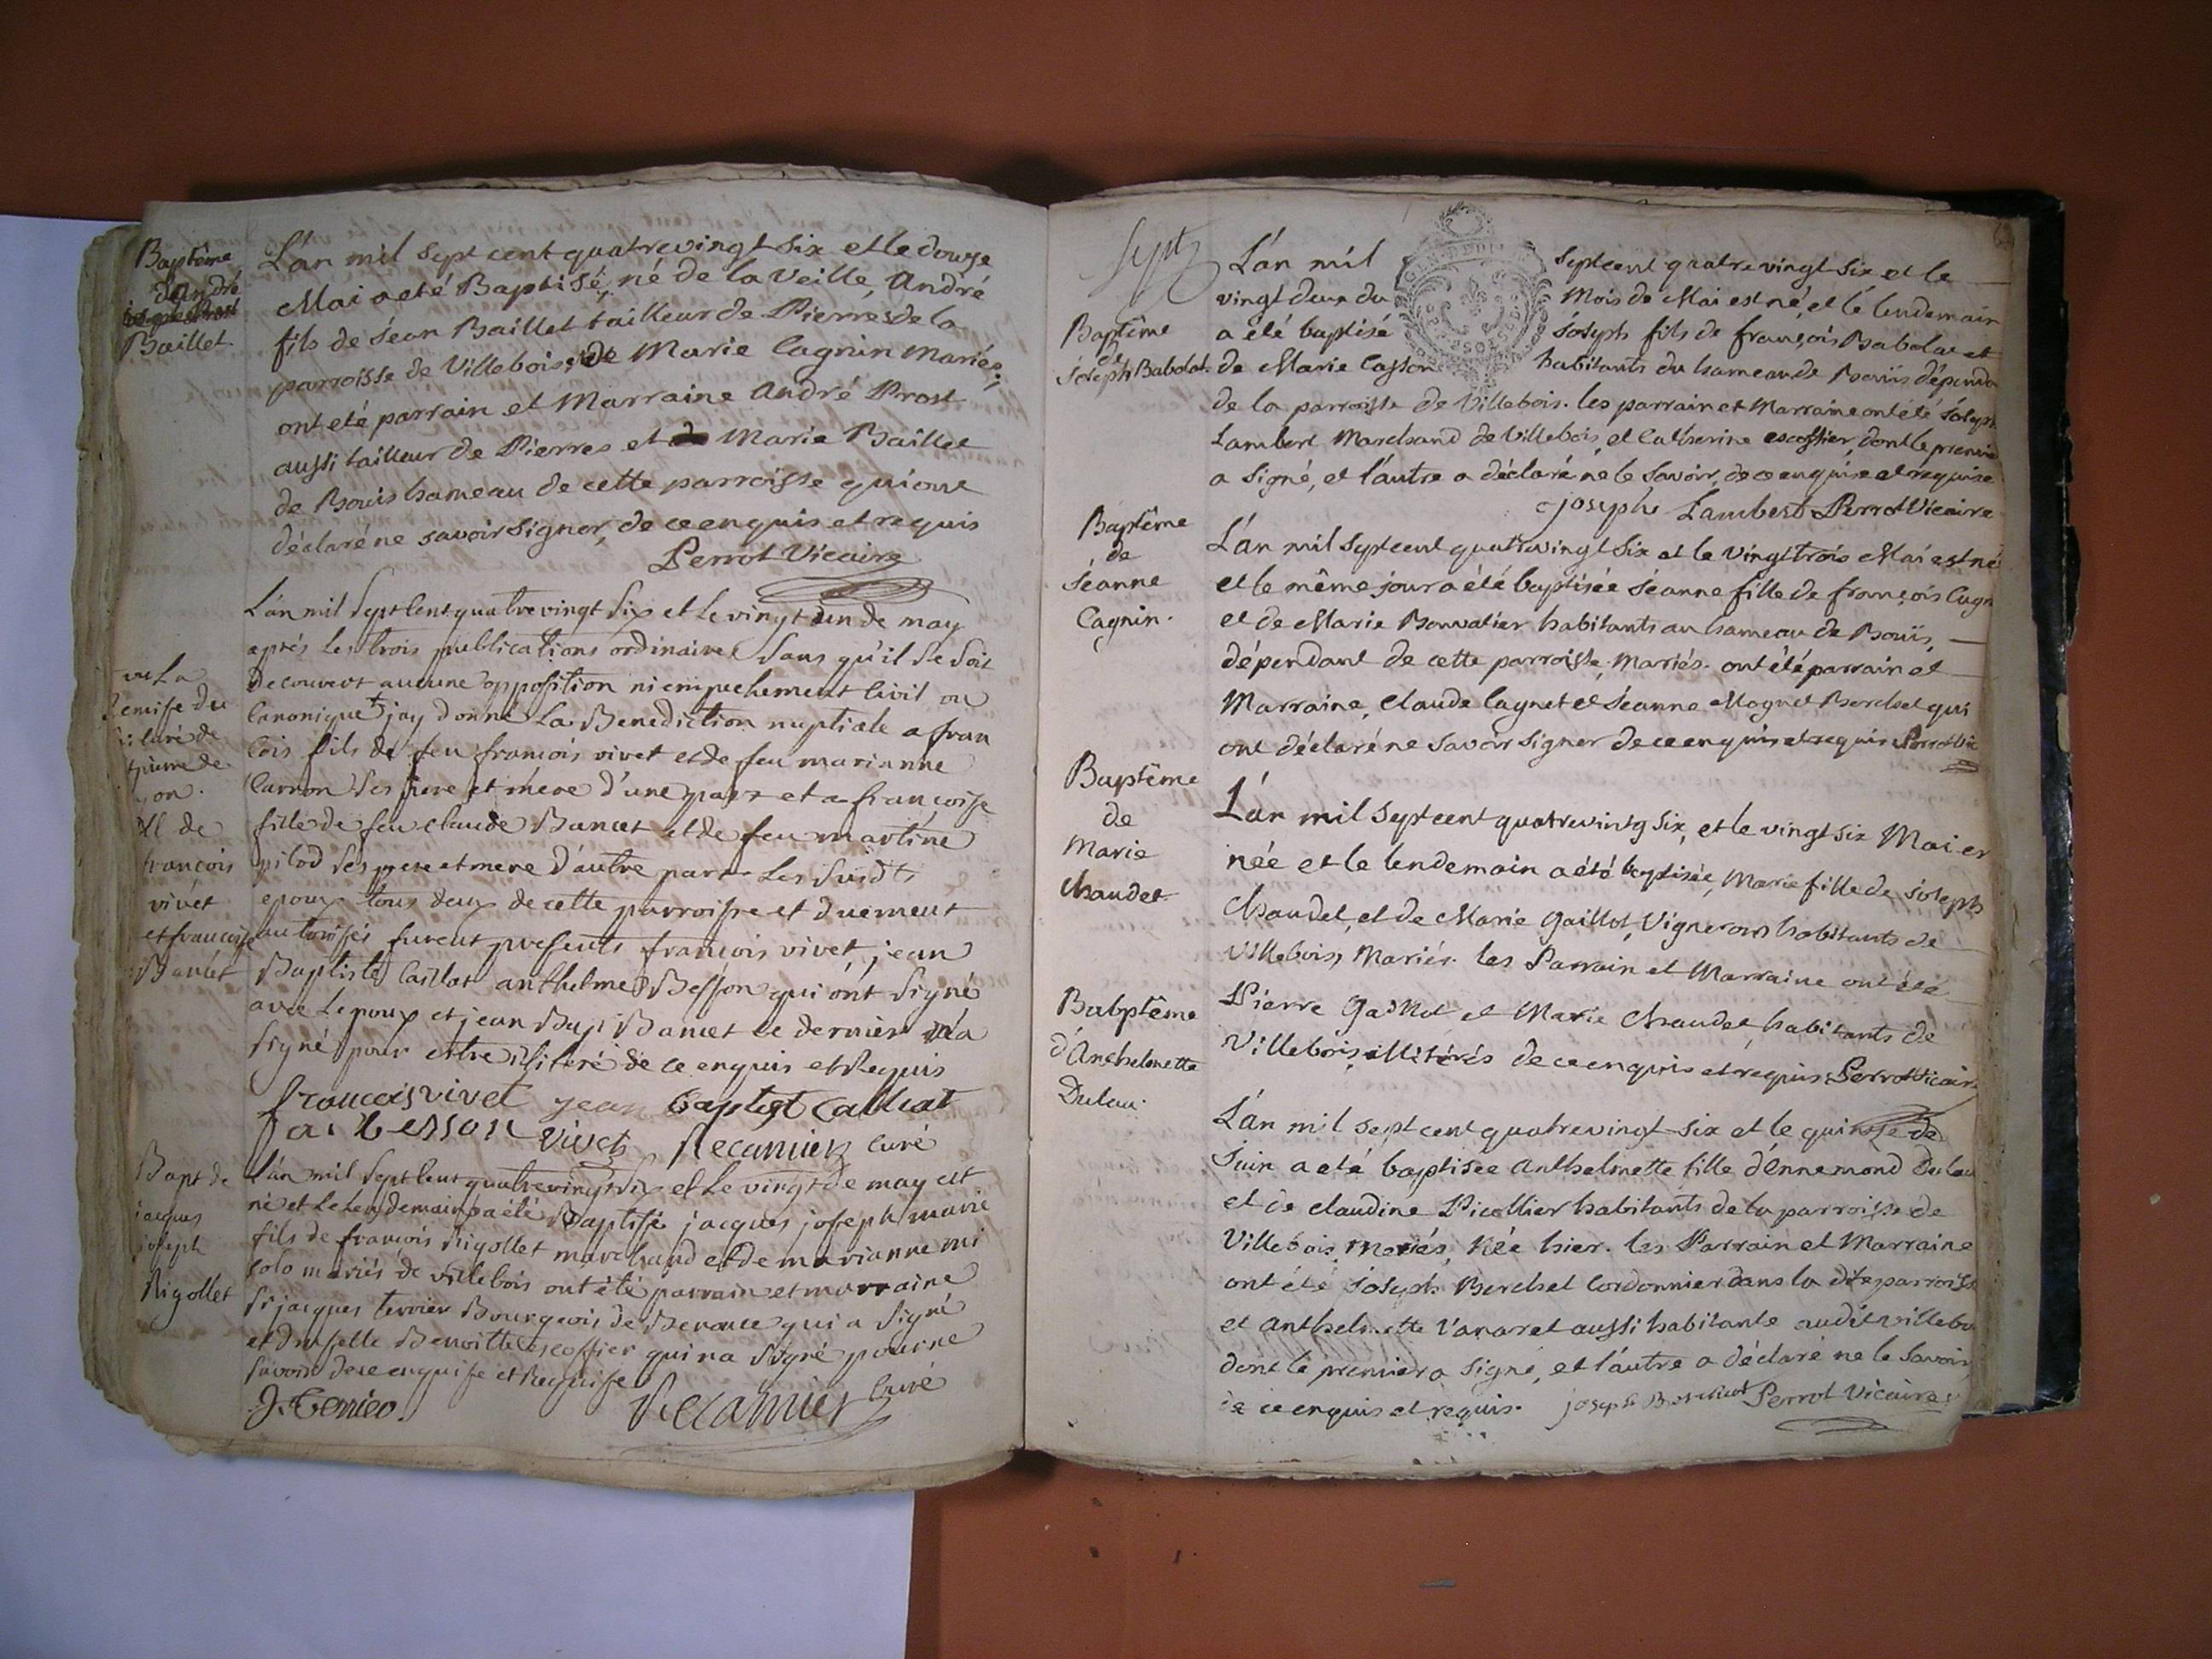 Baptême
d'André
Baillet.
L'an mil sept cent quatrevingt six et le douze
Mai a eté Baptisé, né de la Veille, André
fils de Jean Baillet tailleur de Pierres de la
parroisse de Villebois, et de Marie Cagnin mariés;
ont eté parrain et Marraine André Prost
aussi tailleur de Pierres et Marie Baillet
de Bouis hameau de cette parroisse qui ont
déclaré ne savoir signer, de ce enquis et requis
Perrot Vicaire
vu La
Remise du
curé de
pierre de
yon.
M de
françois
vivet
et francoise
Bancet
L'an mil Sept Cent quatre vingt Six et Le vingt d'un de may
aprés Les trois publications ordinaires Sans qu'il Se Soit
Decouvert aucune opposition ni empechement Civil ou
Canonique j'ay donné La Benediction nuptiale a fran
cois fils de feu francois vivet et de feu marianne
Carron Ses pere et mére d'une part et a francoise
fille de feu claude Bancet et de feu martine
pilod Ses pere et mere d'autre part Les Susdts
epoux tous deux de cette parroisse et duement
autorisés furent presents francois vivet, jean
Baptiste Caillat anthelme Besson qui ont Signé
avec L'epoux et jean Bap. Bancet ce dernier n'a
Signé pour estre illiteré de ce enquis et Requis
francois vivet jean baptist Caillat
fa. besson vivet Recamier Curé
Bapt de
jacques
joseph
Rigollet
L'an mil Sept Cent quatre vingt Six et Le vingt de may est
né et Le Lendemain a été Baptisé jacques joseph marie
fils de francois rigollet marchand et de marianne mi
colo mariés de villebois ont été parrain et marraine
Sr jacques terrier Bourgeois de Benonce qui a Signé
et Dmoiselle Benoitte escoffier qui n'a Signé pour ne
Savoir de ce enquise et Requise
J. Terrier. Recamier Curé
Sept
Baptême
de
Joseph Babolat.
L'an mil septcent quatre vingt six et le
vingt deux du Mois de Mai est né, et le lendemain
a été baptisé Joseph fils de françois Babolat et
de Marie Casson habitants du hameau de Bouïs dépenda
de la parroisse de Villebois. les parrain et Marraine ont été Joseph
Lambert Marchand de Villebois, et Catherine escoffier, dont le premier
a signé, et l'autre a déclaré ne le Savoir, de ce enquise et requise
joseph Lambert Perrot Vicaire
Baptême
de
Jeanne
Cagnin.
L'an mil septcent quatrevingt six et le vingt trois Mai est né
et le même jour a été baptisée Jeanne fille de françois Cagn
et de Marie Bonvalier habitants au hameau de Bouïs,
dépendant de cette parroisse, Mariés. ont été parrain et
Marraine, Claude Cagnet et Jeanne Magnet Berchet qui
ont déclaré ne savoir signer de ce enquis et requis Perrot Vic
Baptême
de
Marie
Chaudet
L'an mil septcent quatrevintg six, et le vingt six Mai es
née et le lendemain a été baptisée, Marie fille de Joseph
Chaudet, et de Marie Gaillot, Vignerons habitants de
Villebois, Mariés. les Parrain et Marraine ont été
Pierre Gaillot et Marie Chaudet, habitants de
Villebois, illitérés de ce enquis et requis. Perrot Vicaire
Babptême
d'Anthelmette
Dulau.
L'an mil sept cent quatrevingt six et le quinse de
Juin a eté baptisée Anthelmette fille d'Ennemond Dulau
et de Claudine Picollier habitants de la parroisse de
Villebois, Mariés, Née hier. les Parrain et Marraine
ont été Joseph Berchet Cordonnier dans la dite parroisse
et Anthelmette Vanaret aussi habitante audit villebo
dont le premier a Signé, et l'autre a déclaré ne le savoir,
de ce enquis et requis. joseph Berchet Perrot Vicaire